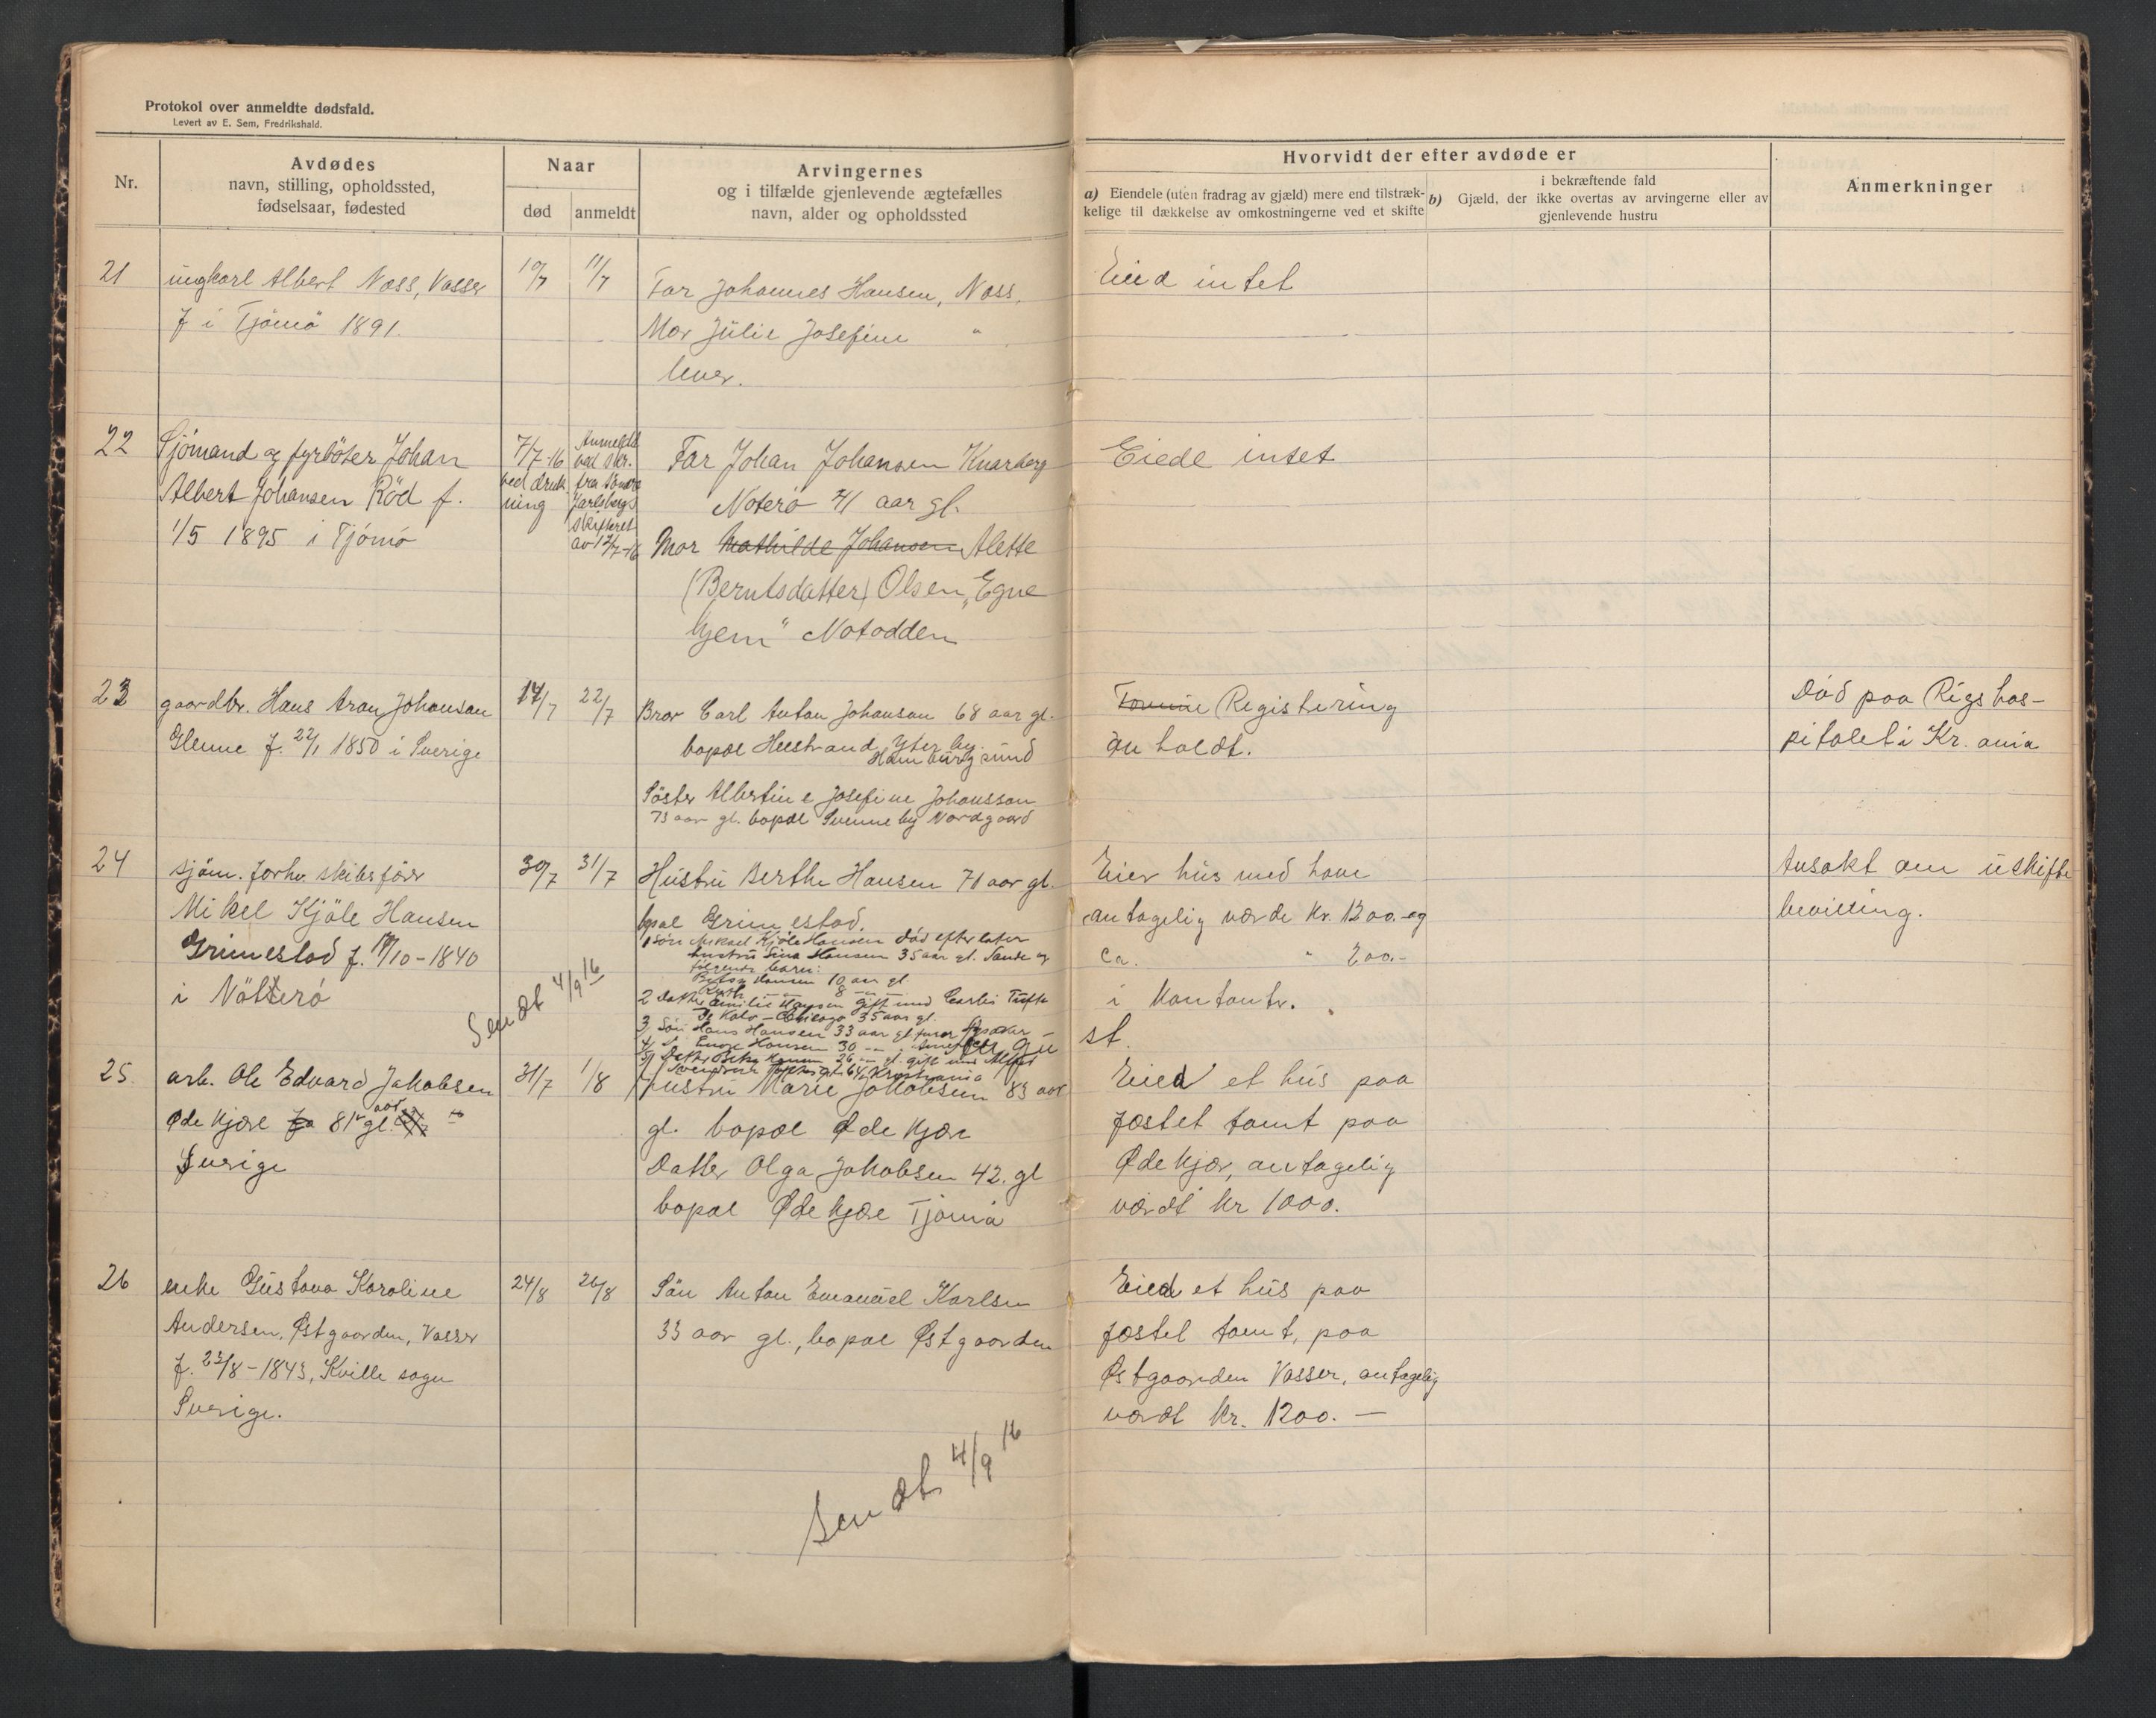 Protokol over anmeldte dødsfald.
Levert av E. Sem, Fredrikshald.
Nr.
Avdødes
navn, stilling, opholdssted,
fødselsaar, fødested
Naar
død
anmeldt
Arvingernes
og i tilfælde gjenlevende ægtefælles
navn, alder og opholdssted
Hvorvidt der efter avdøde er
a) Eiendele (uten fradrag av gjæld) mere end tilstræk-
kelige til dækkelse av omkostningerne ved et skifte
i bekræftende fald
b) Gjæld, der ikke overtas av arvingerne eller av
gjenlevende hustru
Anmerkninger
21
ungkarl Albert Næss, Vasser
f i Tjømø 1891.
10/7
11/7
Far Johannes Hansen, Næss.
Mor Julie Josefine "
lever.
Eied intet
22
Sjömand og fyrböter Johan
Albert Johansen Röd f.
1/5 1895 i Tjömö
7/7-16
ved druk
ning
Anmeldt
ved skr.
fra Söndre
Jarlsberg
skifteret
av 12/7-16
Far Johan Johansen Knarberg
Noterö 41 aar gl.
Mor Mathilde Johansen Alette
(Berntsdatter) Olsen „Egne
hjem" Notodden
Eiede intet
23
gaardbr. Hans Aron Johansen
Glenne f. 22/1 1850 i Sverige
14/7
22/7
Bror Carl Anton Johanson 68 aar gl.
bopæl Heestrand Yter by.
Hamburgsund
Söster Albertine Josefine Johansson
73 aar gl. bopæl Svenneby Nordgaard
Registering
an holdt.
Död paa Rigshos-
pitalet i Kr. ania
24
sjöm. forhv. skibsförer
Mikel Kjöle Hansen
Grimestad f. 19/10-1840
i Nötterö
30/7
31/7
Hustru Berthe Hansen 71 aar gl.
bopæl Grimestad.
1 Sön Mikael Kjöle Hansen död efterlater
hustru Sina Hansen 35 aar gl. Sande og
følgende barn:
Hansen 10 aar gl.
Ruth — 8 — " —
2 Datter Emilie Hansen gift med Carlis Tufte
– Chicago 35 aar gl.
3) Sön Hans Hansen 33 aar gl.
4/ S. Hansen 30 — "
5/ Datter 26 — " gl. gift med Alfred
64 Kristiania
Sendt 4/9 16
Eier hus med have
antagelig værde Kr. 1200.- og
ca. " 200.-
i kontanter.
st.
Ansøkt om uskifte
bevilling.
25.
arb. Ole Edvard Jakobsen
Øde Kjære 81 aar gl.
Sverige
31/7
1/8
Hustru Marie Jakobsen 83 aar
gl. bopæl Øde Kjære
Datter Olga Jakobsen 42. gl
bopæl Øde kjære Tjømø
Eied et hus paa
fæstet tomt paa
Øde Kjær, antagelig
værdt kr 1000.
26
enke Gustava Karoline
Andersen, Østgaarden, Vasser
f. 23/8-1843, Kville sogn
Sverige.
24/8
26/8
Sön Anton Emanuel Karlsen
33 aar gl., bopæl Østgaarden
Eied et hus paa
fæstet tomt, paa
Østgaarden Vasser, antagelig
værdt kr. 1200. —
Sendt 4/9 16